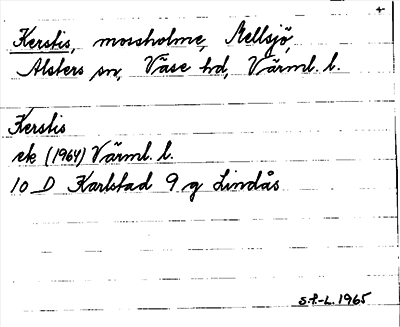 +
Kerstis, mossholme, Mellsjö,
Alsters sn, Väse hd, Värml. l.
Kerstis
ek (1964) Värml. l.
10 D Karlstad 9 g Lindås
S.P.-L. 1965